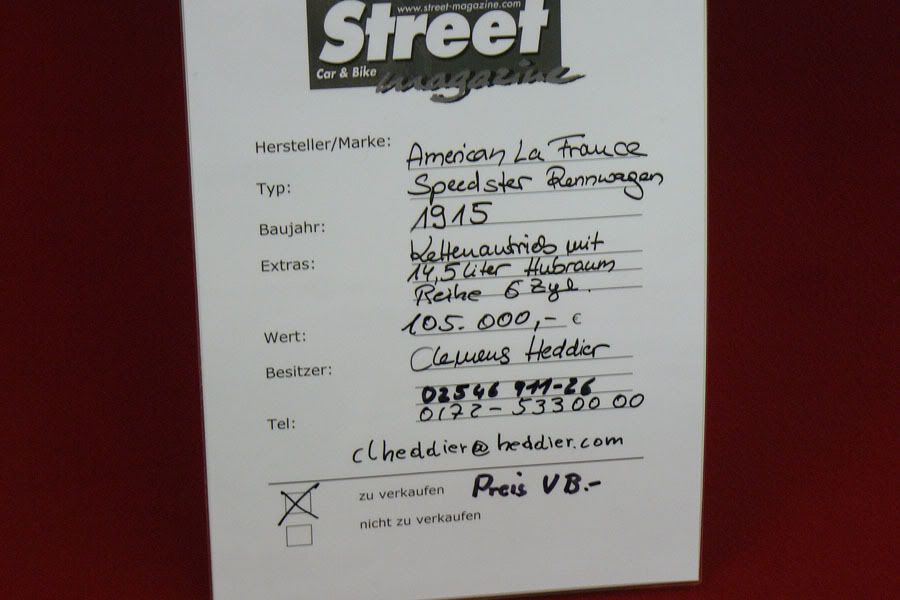 www.street-magazine.com
Street
Car & Bike magazine
Hersteller/Marke: American La France
Typ: Speedster Rennwagen
Baujahr: 1915
Extras: Kettenantrieb mit
14,5 liter Hubraum
Reihe 6 Zyl.
Wert: 105.000,- €
Besitzer: Clemens Heddier
02546 911-26
Tel: 0172-5330000
clheddier@heddier.com
zu verkaufen Preis VB.-
nicht zu verkaufen